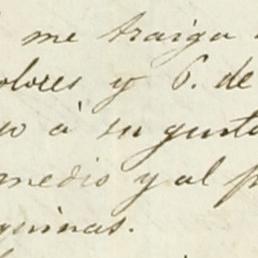 me traiga
olores y 6. de
o à su gusto
medio y al p
quinas.